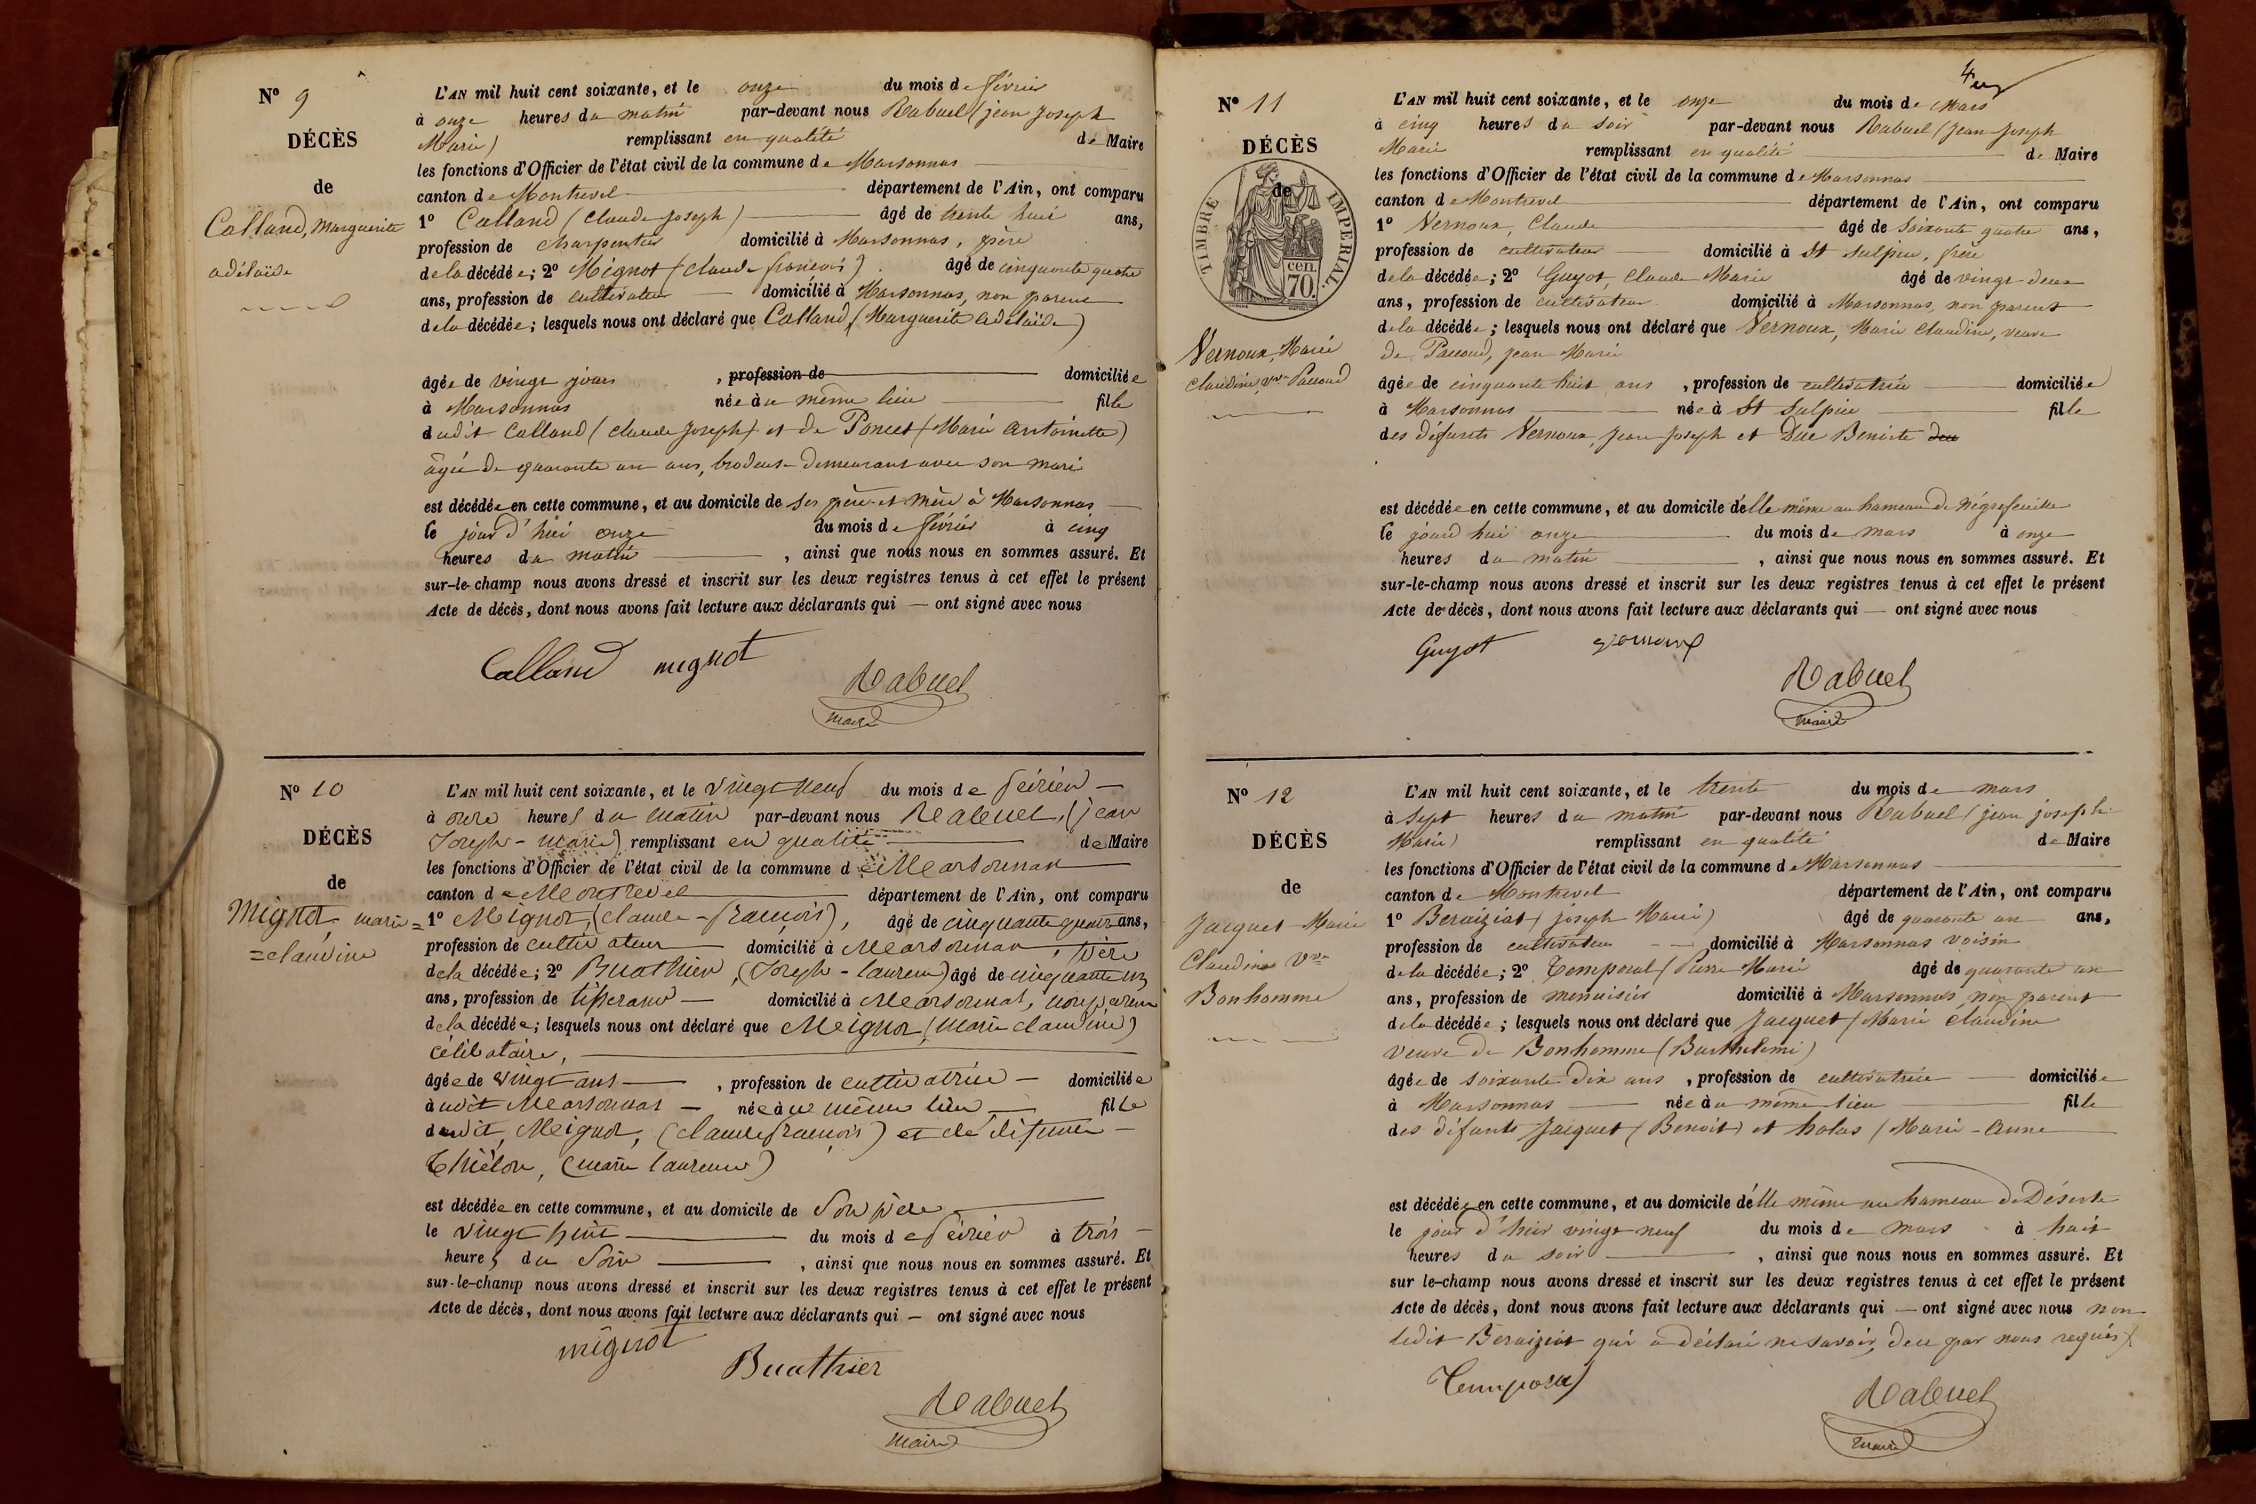 N° 9
DÉCÈS
de
Calland, Marguerite
adélaïde
L'AN mil huit cent soixante, et le onze du mois de février
à onze heures du matin par-devant nous Rabuel (jean Joseph
Marie) remplissant en qualité de Maire
les fonctions d'Officier de l'état civil de la commune de Marsonnas
canton de Montrevel département de l'Ain, ont comparu
1° Calland (Claude Joseph) âgé de trente huit ans,
profession de charpentier domicilié à Marsonnas, père
de la décédée; 2° Mignot (Claude françois) âgé de cinquante quatre
ans, profession de cultivateur domicilié à Marsonnas, non parent
de la décédée; lesquels nous ont déclaré que Calland, (Marguerite adélaïde)
âgée de vingt jours , profession de domiciliée
à Marsonnas née au même lieu fille
dudit Calland (Claude Joseph) et de Poncet (Marie antoinette)
âgée de quarante un ans, brodeuse demeurant avec son mari
est décédée en cette commune, et au domicile de ses père et mère à Marsonnas
le jour d'hui onze du mois de février à cinq
heures du matin , ainsi que nous nous en sommes assuré. Et
sur-le-champ nous avons dressé et inscrit sur les deux registres tenus à cet effet le présent
Acte de décès, dont nous avons fait lecture aux déclarants qui — ont signé avec nous
Calland mignot
Rabuel
maire
N° 10
DÉCÈS
de
Mignot, marie=
=claudine
L'AN mil huit cent soixante, et le vingt neuf du mois de février
à onze heures du matin par-devant nous Rabuel, (jean
Joseph-marie) remplissant en qualité de Maire
les fonctions d'Officier de l'état civil de la commune de Marsonnas
canton de Montrevel département de l'Ain, ont comparu
1° Mignot, (Claude-françois), âgé de cinquante quatre ans,
profession de cultivateur domicilié à Marsonnas, père
de la décédée; 2° Buathier, (Joseph-laurent) âgé de cinquante un
ans, profession de tisserand domicilié à Marsonnas, non parent
de la décédée; lesquels nous ont déclaré que Mignot, (marie claudine)
célibataire,
âgée de vingt ans , profession de cultivatrice domiciliée
à udit Marsonnas née au même lieu fille
dudit Mignot, (Claude françois) et de défunte
Thiélon, (marie laurence)
est décédée en cette commune, et au domicile de Son père
le vingt huit du mois de février à trois
heures du Soir , ainsi que nous nous en sommes assuré. Et
sur-le-champ nous avons dressé et inscrit sur les deux registres tenus à cet effet le présent
Acte de décès, dont nous avons fait lecture aux déclarants qui — ont signé avec nous
mignot
Buathier
Rabuel
maire
4
N° 11
DÉCÈS
de
TIMBRE IMPÉRIAL
cen.
70.
Vernoux, Marie
Claudine, vve Paccoud
L'AN mil huit cent soixante, et le onze du mois de Mars
à cinq heures du soir par-devant nous Rabuel (Jean Joseph
Marie remplissant en qualité de Maire
les fonctions d'Officier de l'état civil de la commune de Marsonnas
canton de Montrevel département de l'Ain, ont comparu
1° Vernoux, Claude âgé de soixante quatre ans,
profession de cultivateur domicilié à St Sulpice, frère
de la décédée; 2° Guyot, Claude Marie âgé de vingt deux
ans, profession de cultivateur domicilié à Marsonnas, non parent
de la décédée; lesquels nous ont déclaré que Vernoux, Marie Claudine, veuve
de Paccoud, Jean Marie
âgée de cinquante huit ans , profession de cultivatrice domiciliée
à Marsonnas née à St Sulpice fille
des défunts Vernoux, Jean Joseph et Duc Benoite
est décédée en cette commune, et au domicile d'elle même au hameau de Négrefeuille
le jourd hui onze du mois de mars à onze
heures du matin , ainsi que nous nous en sommes assuré. Et
sur-le-champ nous avons dressé et inscrit sur les deux registres tenus à cet effet le présent
Acte de décès, dont nous avons fait lecture aux déclarants qui — ont signé avec nous
Guyot
Rabuel
maire
N° 12
DÉCÈS
de
Jacquet Marie
Claudine Vve
Bonhomme
L'AN mil huit cent soixante, et le trente du mois de mars
à sept heures du matin par-devant nous Rabuel (jean joseph
Marie) remplissant en qualité de Maire
les fonctions d'Officier de l'état civil de la commune de Marsonnas
canton de Montrevel département de l'Ain, ont comparu
1° Beraiziat (joseph Marie) âgé de quarante un ans,
profession de cultivateur domicilié à Marsonnas voisin
de la décédée; 2° Temporal (Pierre Marie âgé de quarante un
ans, profession de menuisier domicilié à Marsonnas non parent
de la décédée; lesquels nous ont déclaré que Jacquet (Marie Claudine
veuve de Bonhomme (Barthelemi)
âgée de soixante dix ans , profession de cultivatrice domiciliée
à Marsonnas née au même lieu fille
des défunts Jacquet (Benoit) et holas (Marie-Anne
est décédée en cette commune, et au domicile d'elle même au hameau de Déserte
le jour d'hier vingt neuf du mois de mars à huit
heures du soir , ainsi que nous nous en sommes assuré. Et
sur le-champ nous avons dressé et inscrit sur les deux registres tenus à cet effet le présent
Acte de décès, dont nous avons fait lecture aux déclarants qui — ont signé avec nous non
ledit Beraiziat qui a déclaré ne savoir, de ce par nous requis
Temporal
Rabuel
maire